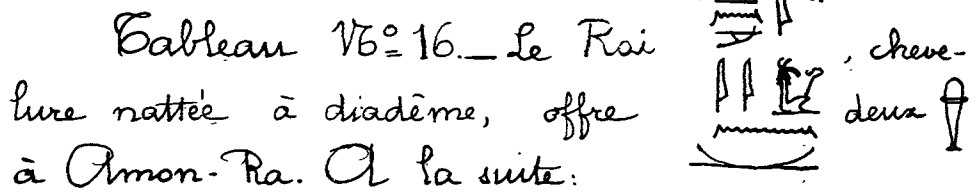 Tableau Nº 16._ Le Roi , cheve-
lure nattée à diadême, offre deux
à Amon-Ra. A la suite: